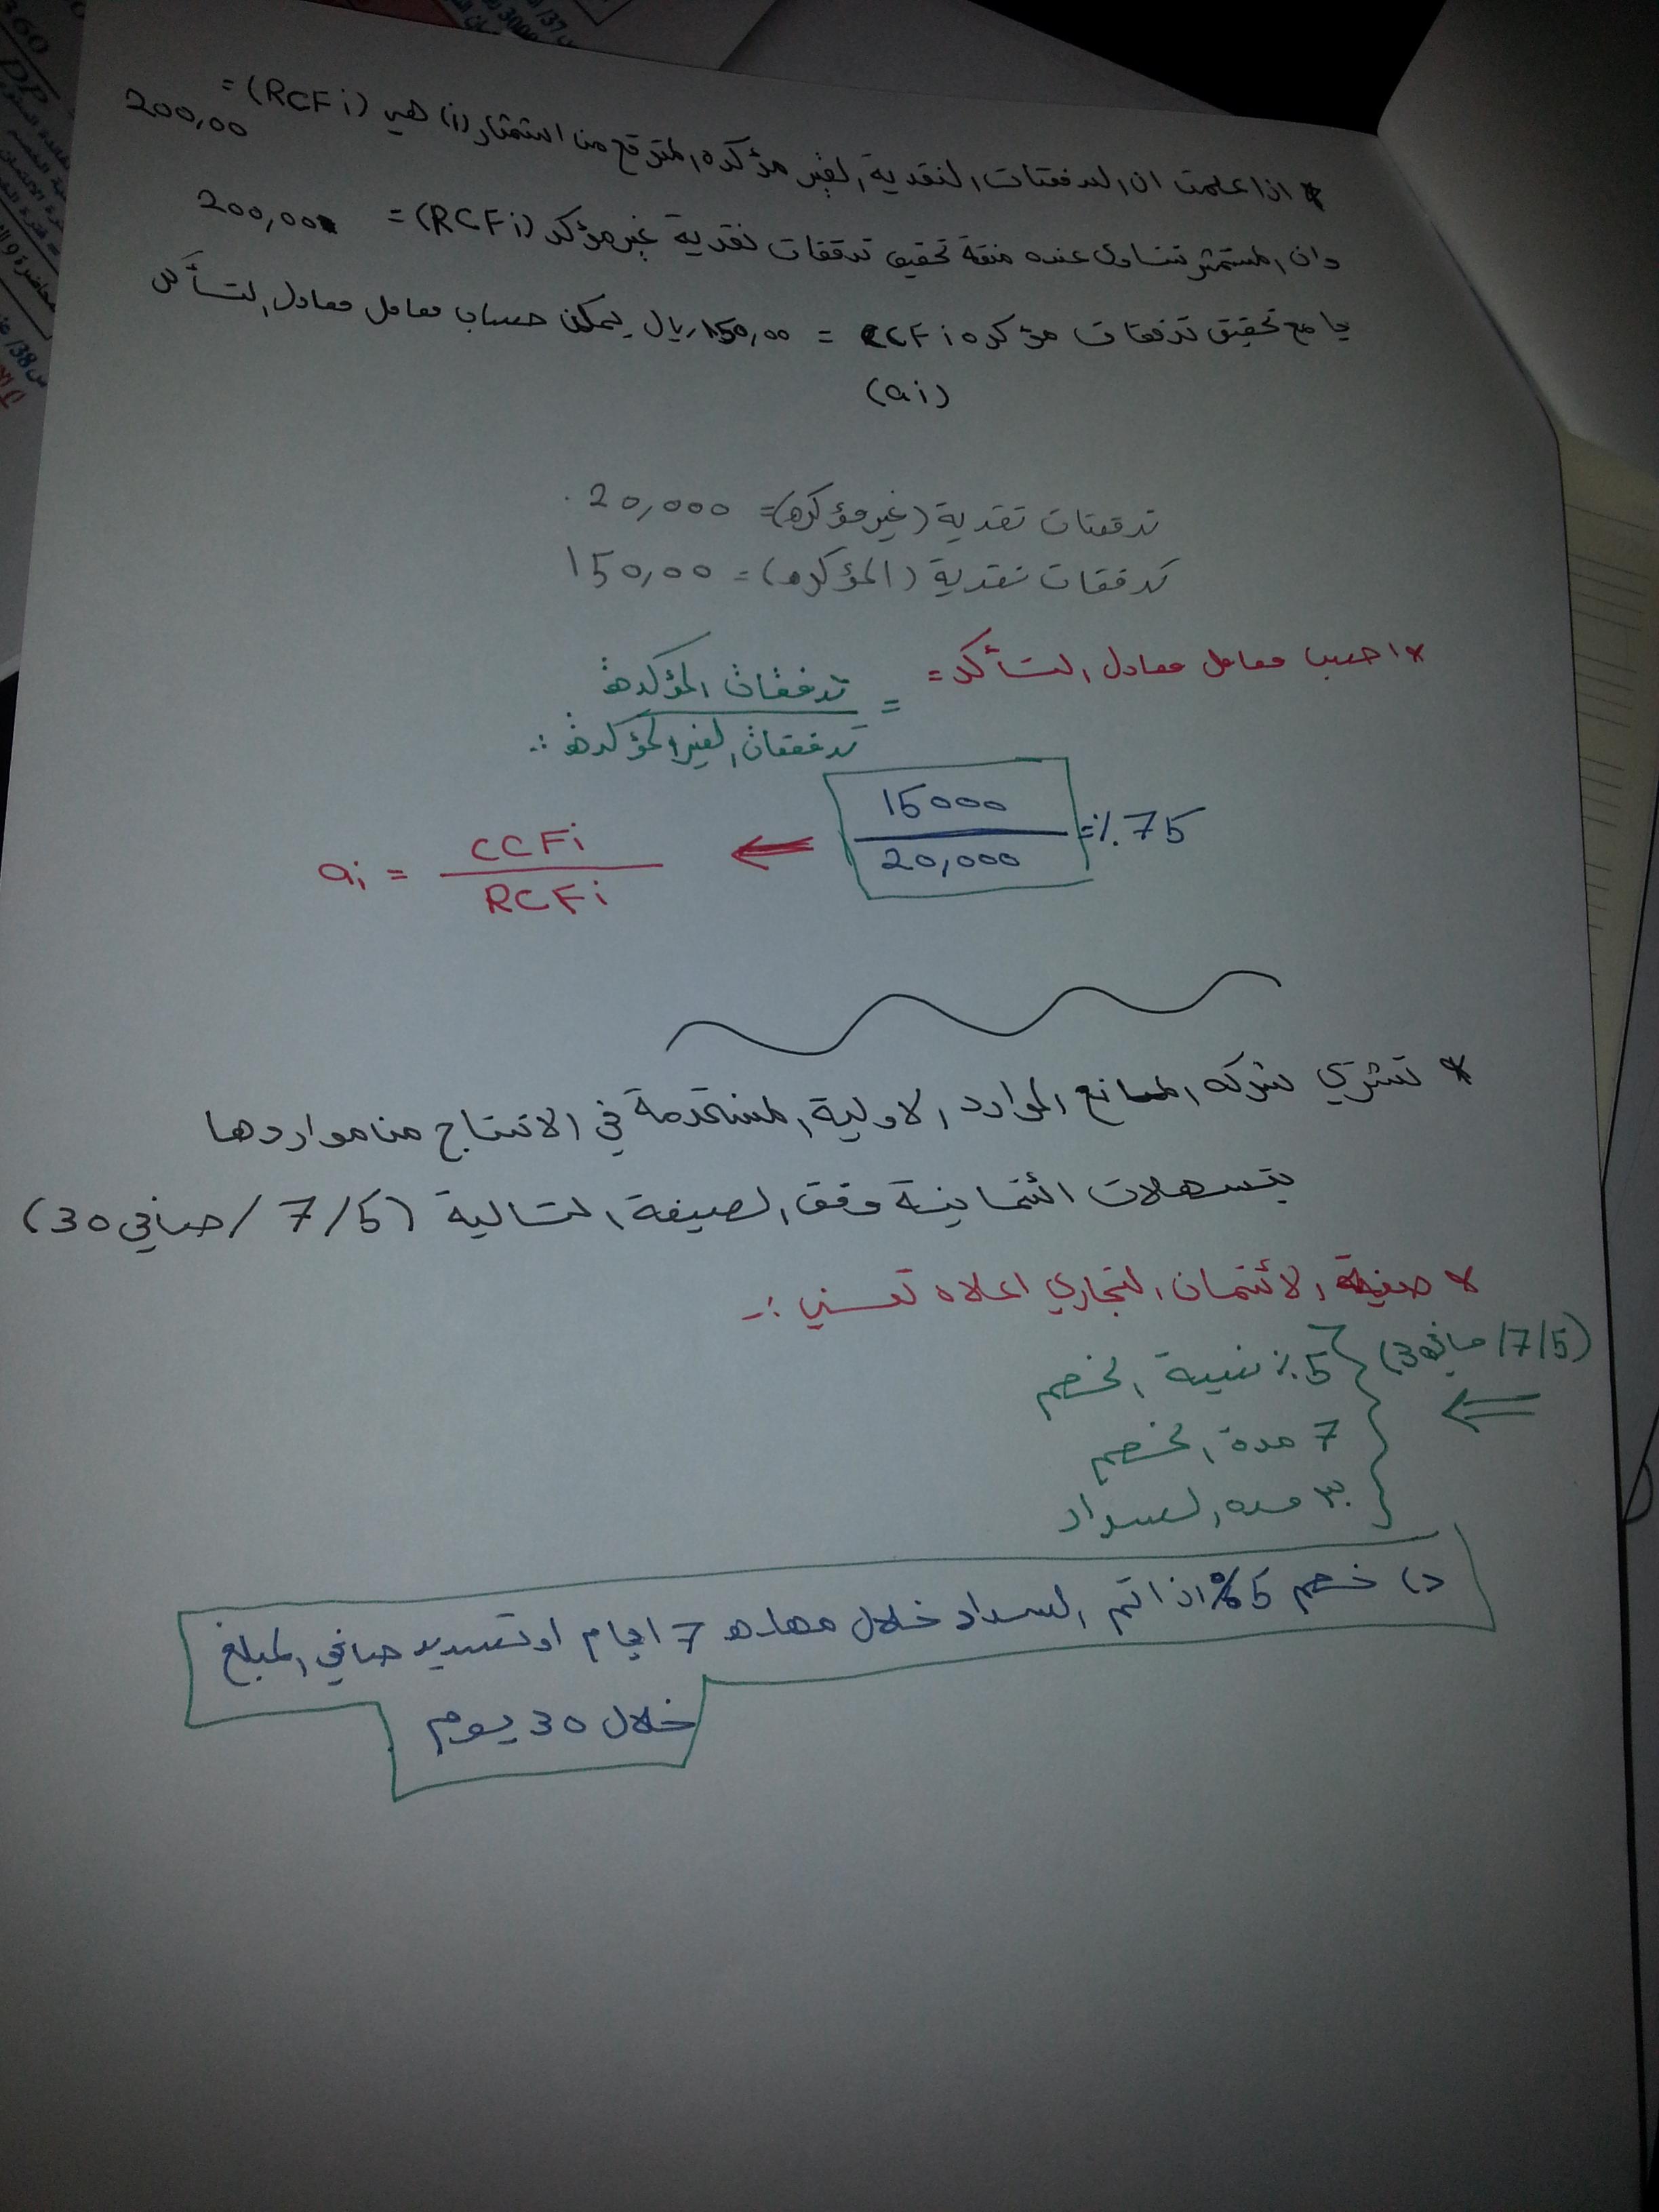 * اذا علمت ان التدفقات النقدية الغير مؤكده المتوقع من استثمار (i) هي (RCFi) =
200,00
وان المستثمر تتساوى عنده منفعة تحقيق تدفقات نقدية غير مؤكد (RCFi) = 200,00
مع تحقيق تدفقات مؤكده CCFi = 150,00 ريال يمكن حساب معامل معادل التأكد
(ai)
تدفقات نقدية (غير مؤكده) = 20,000
تدفقات نقدية (المؤكده) = 150,00
* احسب معامل معادل التأكد =
= تدفقات المؤكده
تدفقات الغير المؤكده
15000
20,000
= %75
ai = CCFi
RCFi
* تشتري شركه المصانع الموارد الاولية المستخدمة في الانتاج من مواردها
بتسهلات ائتمانية وفق الصيغة التالية (7/5 / صافي 30)
* صيغة الائتمان التجاري اعلاه تعني :-
(7/5/ صافي 30)
5% نسبة الخصم
7 مدة الخصم
30 مده السداد
د) خصم 5% اذا تم السداد خلال مهاره 7 ايام او تسديد صافي المبلغ
خلال 30 يوم